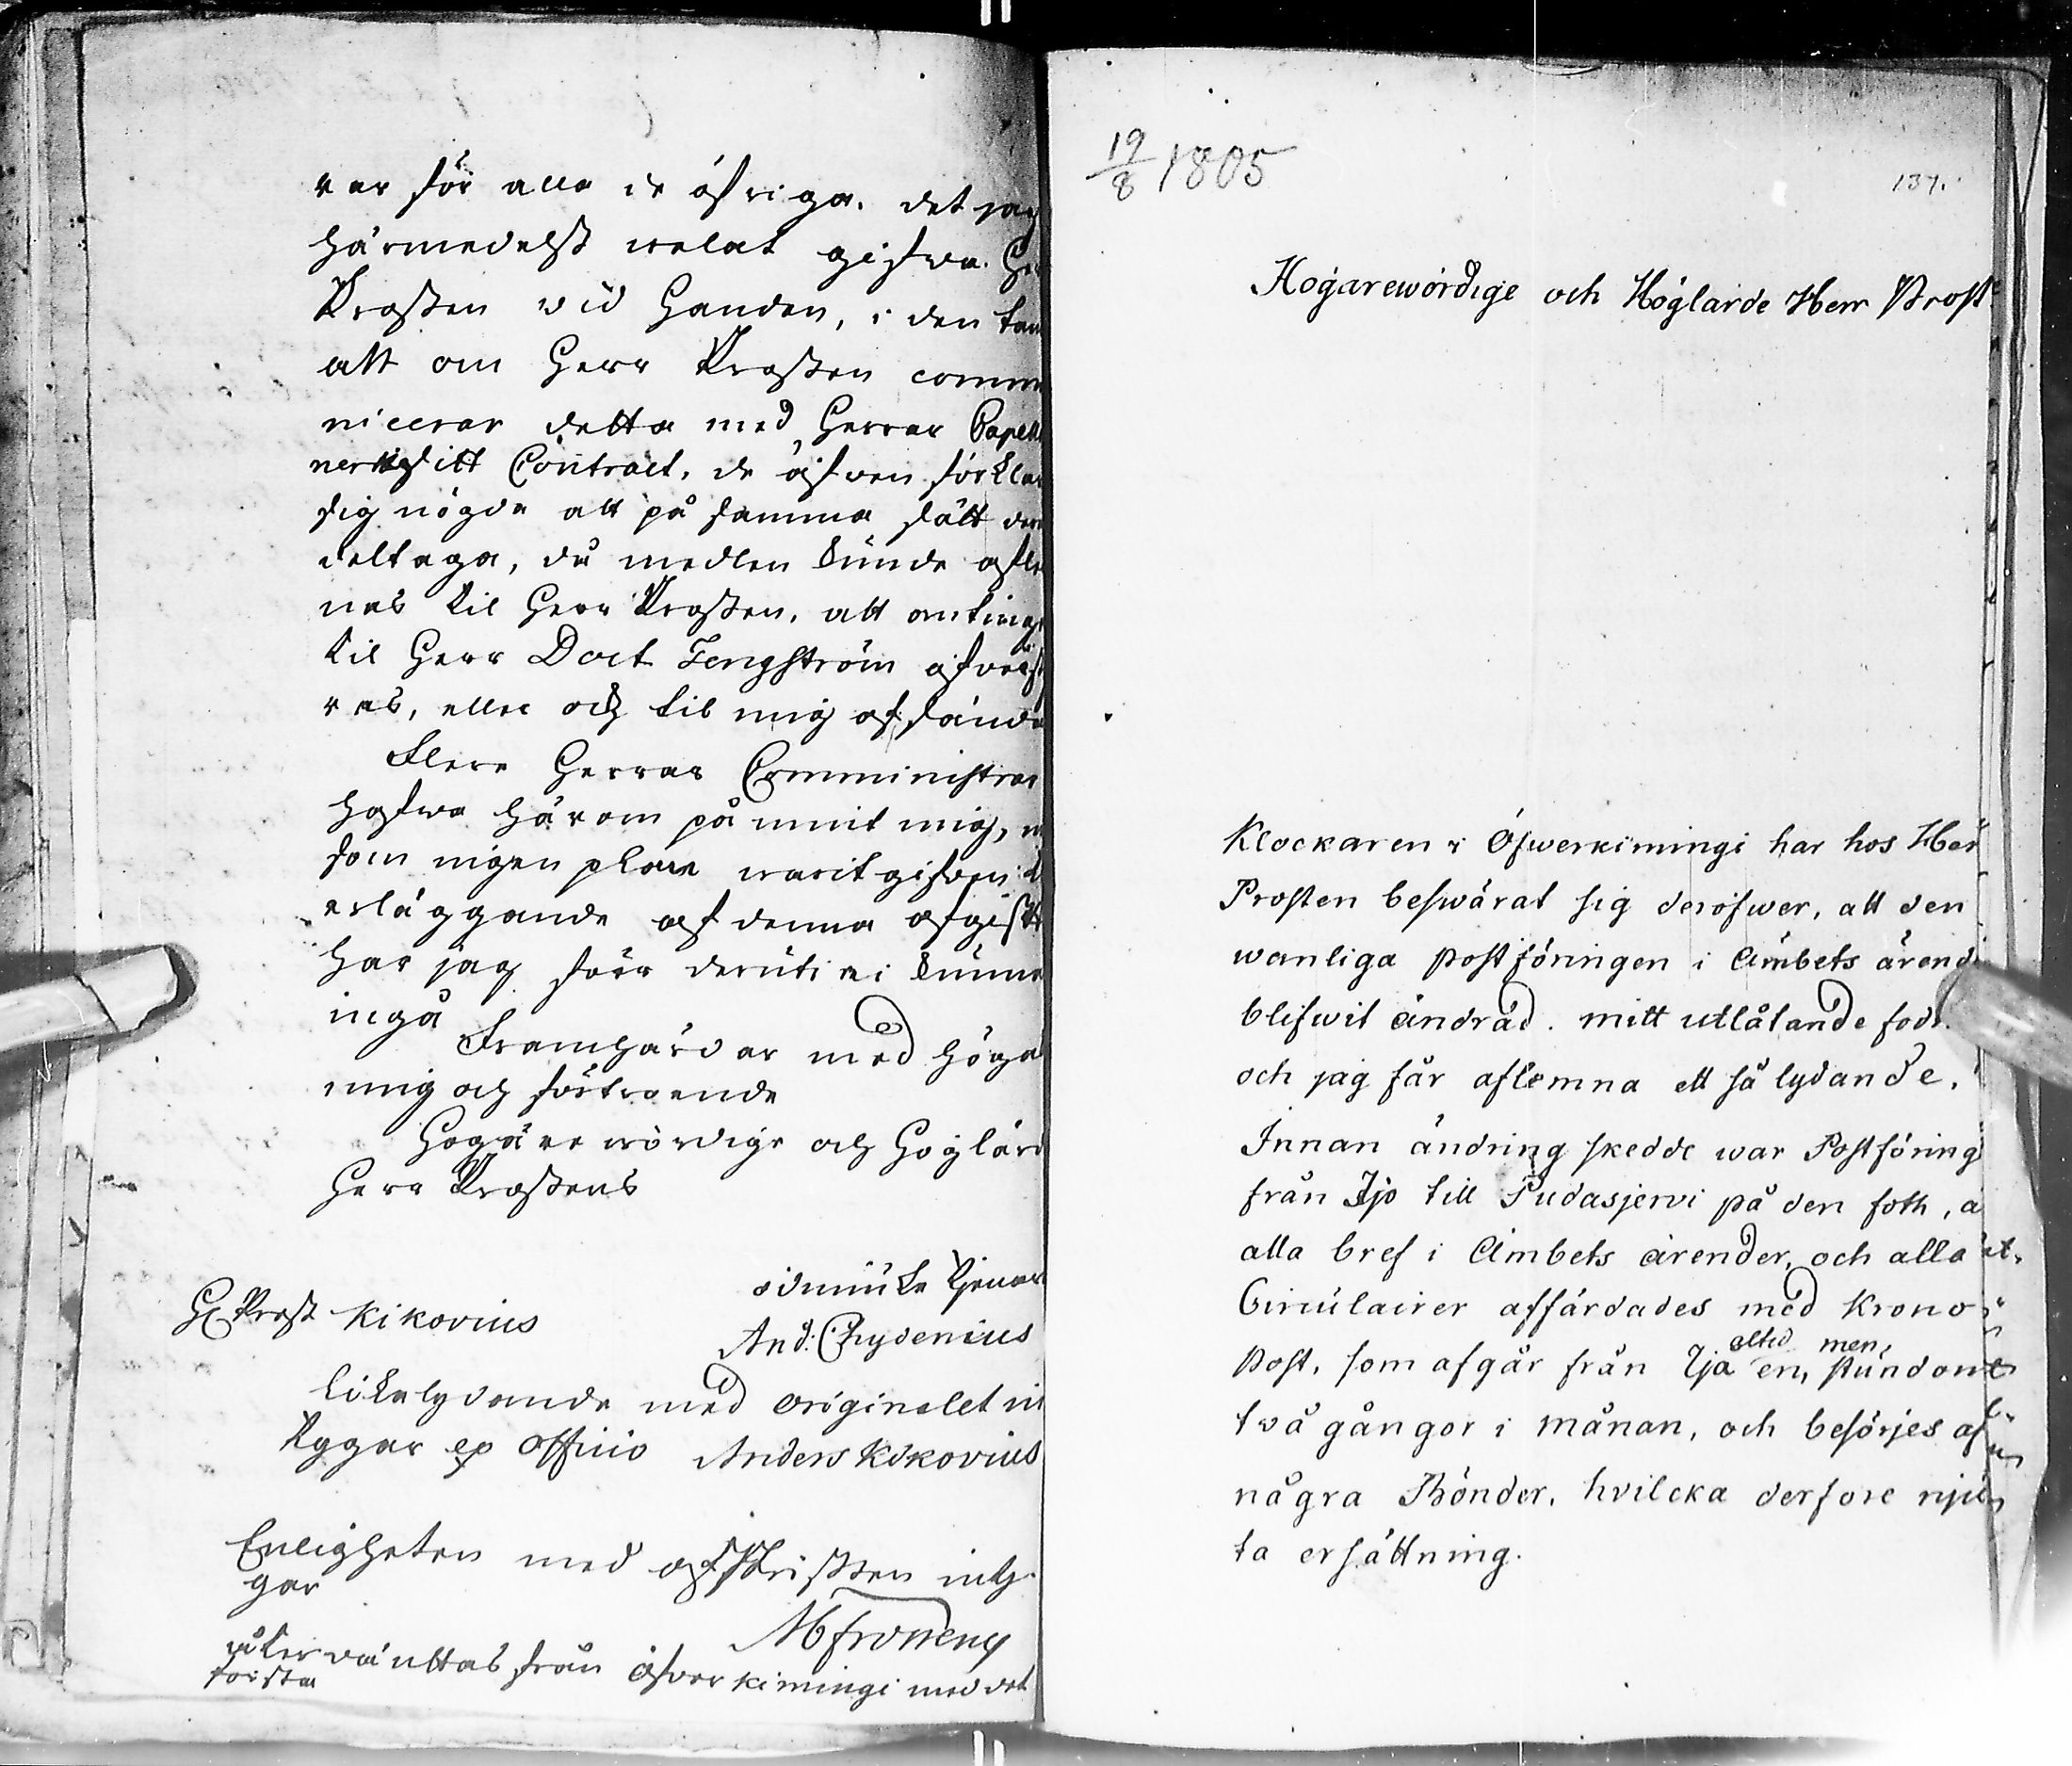 rar för alla de öfriga. det jag
härmedelst welat gifwa Her
Prosten vid Handen, i den tan
att om Herr Prosten commu
nicerar detta med Herrar Capell
ner i sitt Contract, de äfwen förkla
sig nögda att på samma sätt der
deltaga, då medlen kunde afle
nas til Herr Prosten, att antinge
til Herr Doct Tengström öfwerfö
ras, eller och til mig afsända
Flere Herrar Comministrar
hafwa härom påmint mig, m
som ingen plan warit gifwen t
erläggande af denna afgift
har jag förr deruti ei kunna
ingå
Framhärdar med höga
ning och förtroende
Högärewördige och Höglärd
Herr Prostens
ödmjuke tjenare
H Prost Kikovius
And: Chydenius
Likalydande med originalet in
tygar ex officio Anders Kikovius
Enligheten med afskriften inty
gar
M Froneny
återväntas från öfverkimingi med det
första
19/8 1805
137.
Högärewördige och Höglärde Herr Prost
Klockaren i Öfwerkimingi har hos Her
Prosten beswärat sig deröfwer, att den
wanliga postföringen i Ämbets ärend
blifwit ändrad. mitt utlåtande fodr
och jag får aflemna ett så lydande.
Innan ändring skedde war Postföring
från Ijo till Pudasjerwi på den foth, a
alla bref i Ämbets ärender, och alla
Circulairer affärdades med Krono
Post, som afgår från Ijo altid en, men stundom
två gångor i månan, och besörjes af
några Bönder, hvilcka derfore nju
ta ersättning.